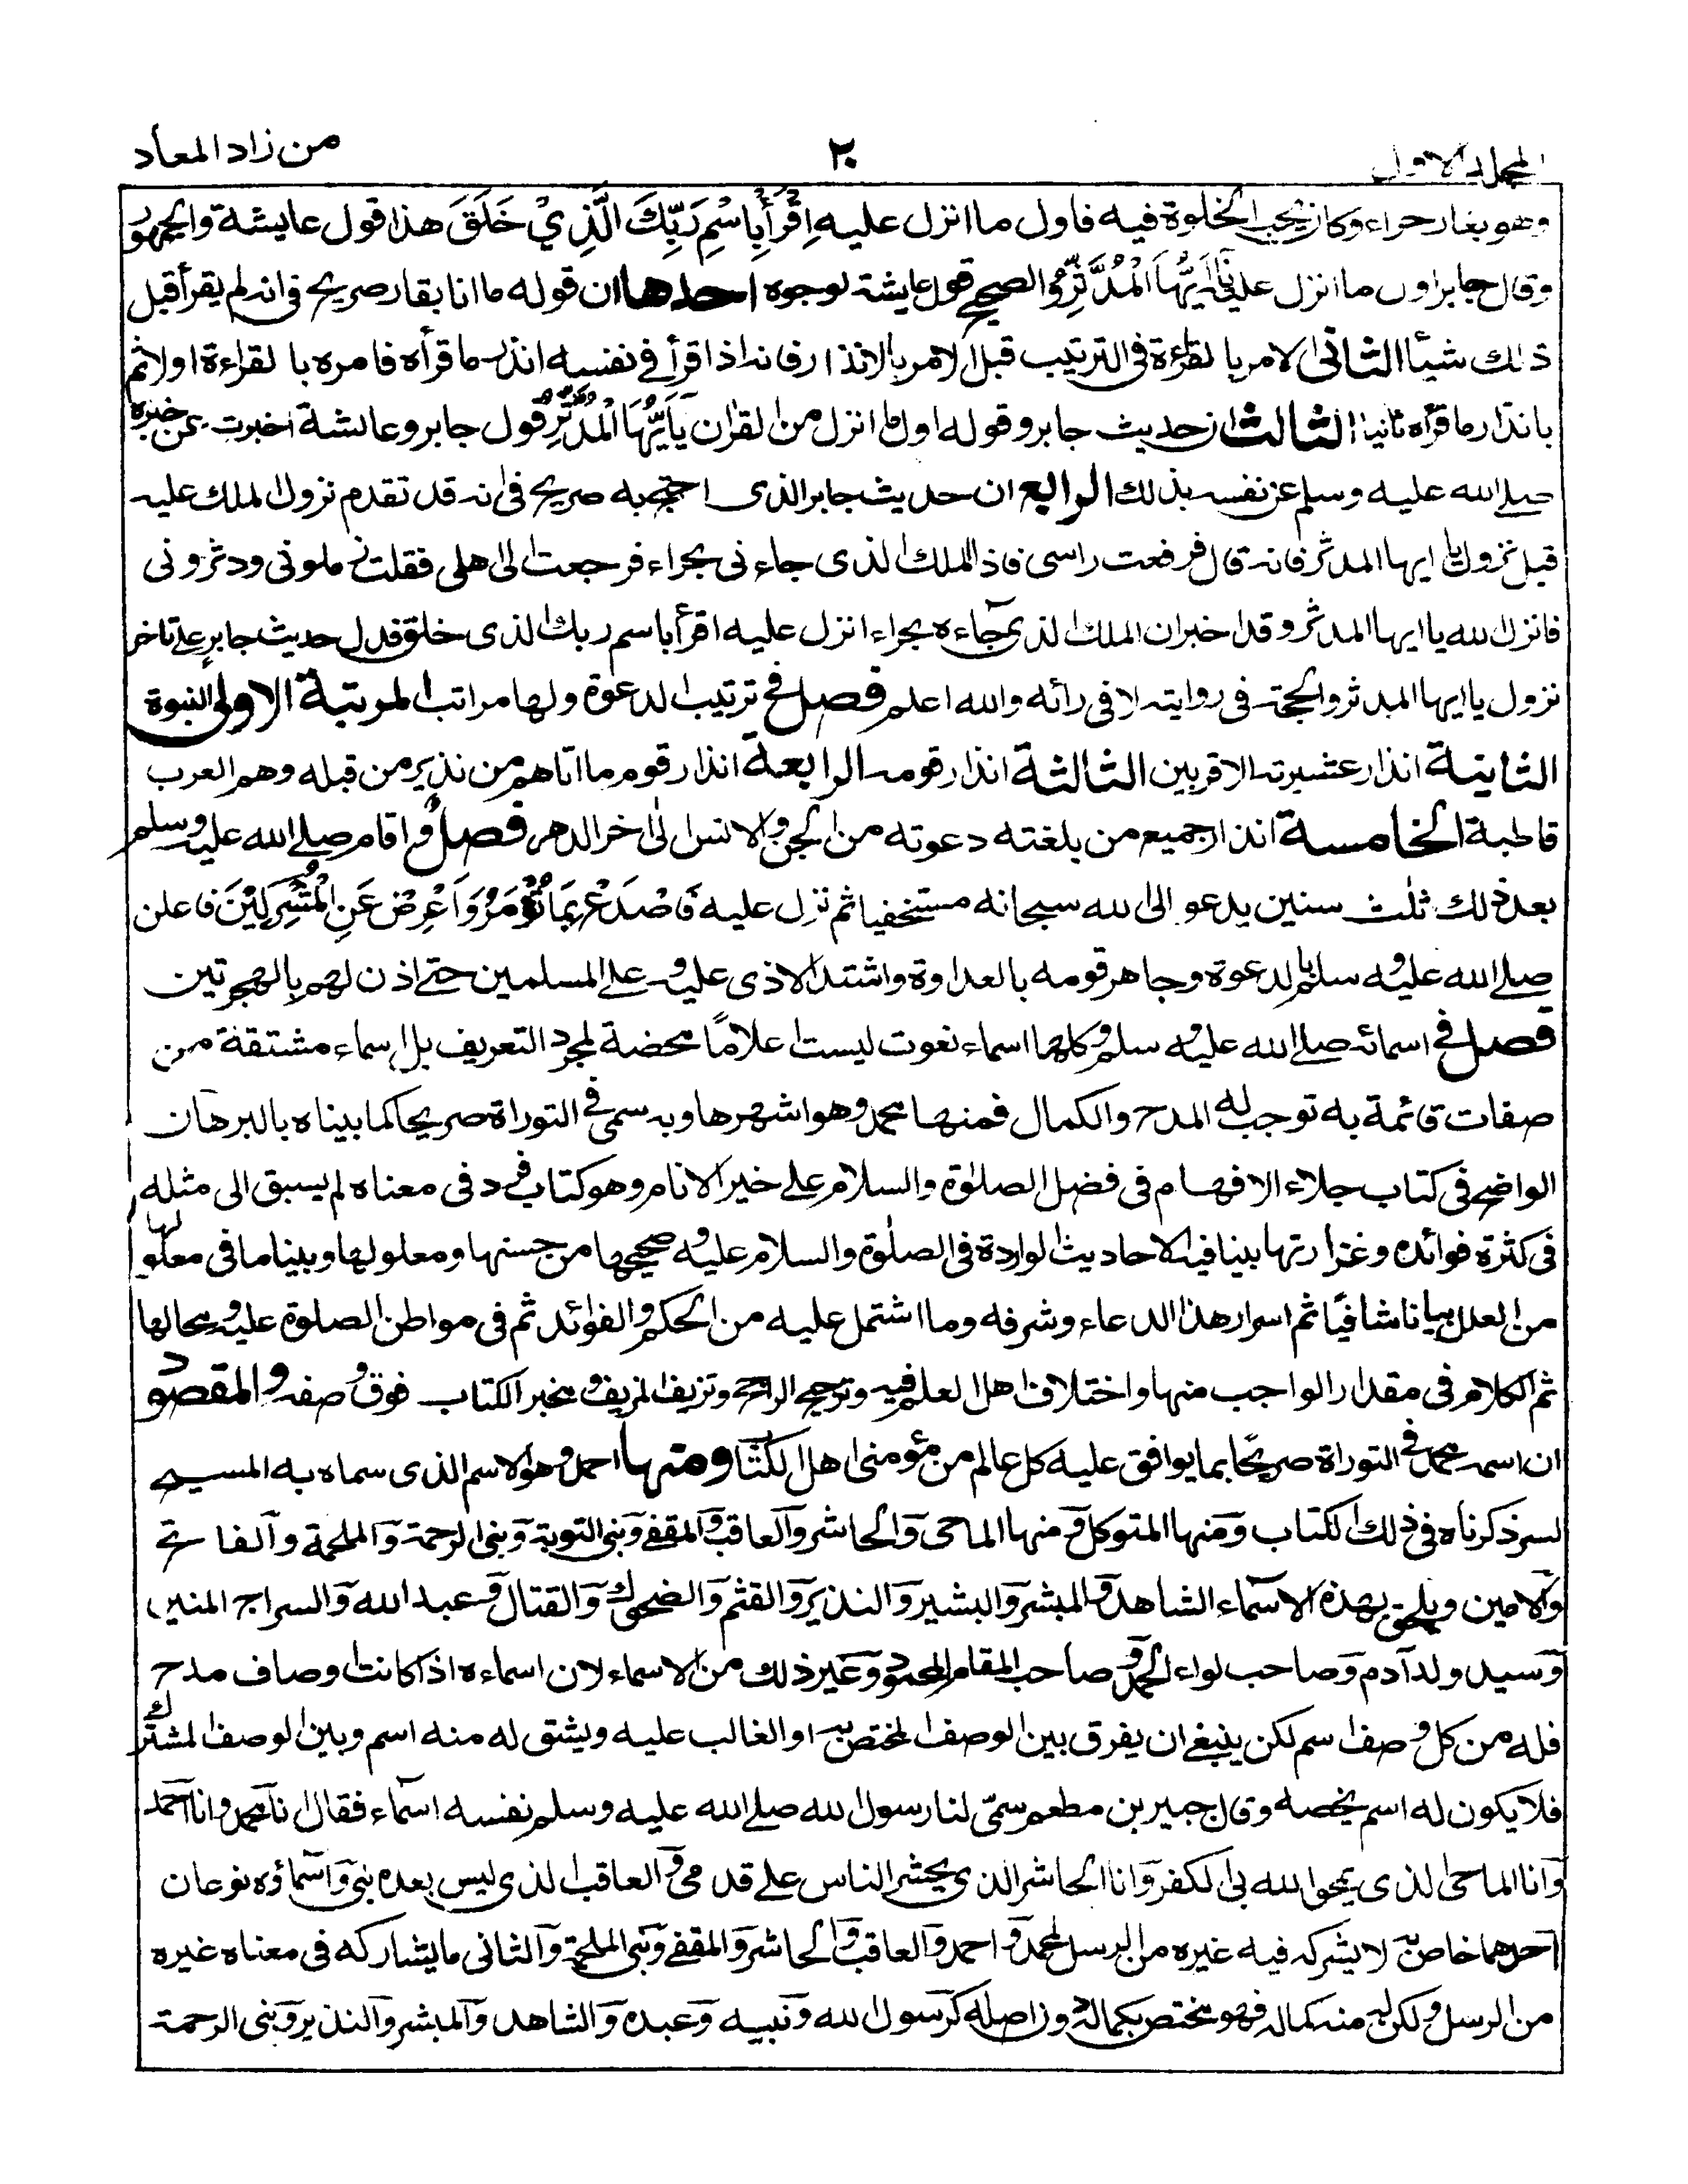 المجلد الاول
٣٠
من زاد المعاد
وهو بغار حراء وكان يحب الخلوة فيه فاول ما انزل عليه اِقْرَأْ بِاسْمِ رَبِّكَ الَّذِيْ خَلَقَ هذا قول عايشة والجمهور
وقال جابر اول ما انزل عليه يَا اَيُّهَا الْمُدَّثِّرُ والصحيح قول عايشة لوجوه احدها ان قوله ما انا بقار صريح فى انه لم يقرأ قبل
ذلك شيئا الثانى الامر بالقراءة فى الترتيب قبل الامر بالانذار فانه اذا قرأ فى نفسه انذر ما قرأه فامره بالقراءة اولا ثم
بانذار ما قرأه ثانيا الثالث ان حديث جابر وقوله اول ما انزل من القران يَا اَيُّهَا الْمُدَّثِّرُ قول جابر وعائشة اخبرت عن خبره
صلى الله عليه وسلم عن نفسه بذلك الرابع ان حديث جابر الذى احتج به صريح فى انه قد تقدم نزول الملك عليه
قبل نزول يا ايها المدثر فانه قال فرفعت راسى فاذا الملك الذى جاءنى بحراء فرجعت الى اهلى فقلت زملونى ودثرونى
فانزل الله يا ايها المدثر وقد اخبر ان الملك الذى جاءه بحراء انزل عليه اقرأ باسم ربك الذى خلق فدل حديث جابر على تاخر
نزول يا ايها المدثر والحجة فى روايته لا فى رائه والله اعلم فصل فى ترتيب الدعوة ولها مراتب المرتبة الاولى النبوة
الثانية انذار عشيرته الاقربين الثالثة انذار قومه الرابعة انذار قوم ما اتاهم من نذير من قبله وهم العرب
قاطبة الخامسة انذار جميع من بلغته دعوته من الجن والانس الى اخر الدهر فصل واقام صلى الله عليه وسلم
بعد ذلك ثلث سنين يدعو الى الله سبحانه مستخفيا ثم نزل عليه فَاصْدَعْ بِمَا تُؤْمَرُ وَاَعْرِضْ عَنِ الْمُشْرِكِيْنَ فاعلن
صلى الله عليه وسلم بالدعوة وجاهر قومه بالعداوة واشتد الاذى عليه وعلى المسلمين حتى اذن لهم بالهجرتين
فصل فى اسمائه صلى الله عليه وسلم وكلها اسماء نعوت ليست اعلاماً محضة لمجرد التعريف بل اسماء مشتقة من
صفات قائمة به توجب له المدح والكمال فمنها محمد وهو اشهرها وبه سمى فى التوراة صريحا كما بيناه بالبرهان
الواضح فى كتاب جلاء الافهام فى فضل الصلوٰة والسلام على خير الانام وهو كتاب فرد فى معناه لم يسبق الى مثله
فى كثرة فوائده وغزارتها بينا فيه الاحاديث الواردة فى الصلوٰة والسلام عليه وصحيحها من حسنها ومعلولها وبينا ما فى معلولها
من العلل بيانا شافيًا ثم اسرار هذا الدعاء وشرفه وما اشتمل عليه من الحكم والفوائد ثم فى مواطن الصلوة عليه ومحالها
ثم الكلام فى مقدار الواجب منها واختلاف اهل العلم فيه وترجيح الراجح وتزيف المزيف ومخبر الكتاب فوق وصفه والمقصود
ان اسمه محمد فى التوراة صريحًا بما يوافق عليه كل عالم من مؤمنى اهل الكتاب ومنها احمد وهو الاسم الذى سماه به المسيح
لسر ذكرناه فى ذلك الكتاب ومنها المتوكل ومنها الماحى والحاشر والعاقب والمقفى ونبى التوبة ونبى الرحمة والملحمة والفاتح
والامين ويلحق بهذه الاسماء الشاهد والمبشر والبشير والنذير والقثم والضحوك والقتال وعبد الله والسراج المنير
وسيد ولد آدم وصاحب لواء الحمد وصاحب المقام المحمود وغير ذلك من الاسماء لان اسماءه اذا كانت اوصاف مدح
فله من كل وصف اسم لكن ينبغى ان يفرق بين الوصف المختص به او الغالب عليه ويشتق له منه اسم وبين الوصف المشترك
فلا يكون له اسم يخصه وقال جبير بن مطعم سمّى لنا رسول الله صلى الله عليه وسلم نفسه اسماء فقال انا محمد وانا احمد
وانا الماحى الذى يمحو الله بى الكفر وانا الحاشر الذى يحشر الناس على قدمى والعاقب الذى ليس بعده نبى واسماؤه نوعان
احدهما خاص به لا يشركه فيه غيره من الرسل كمحمد واحمد والعاقب والحاشر والمقفى ونبى الملحمة والثانى ما يشاركه فى معناه غيره
من الرسل ولكن له منه كماله فهو مختص بكماله دون اصله كرسول الله ونبيه وعبده والشاهد والمبشر والنذير ونبى الرحمة